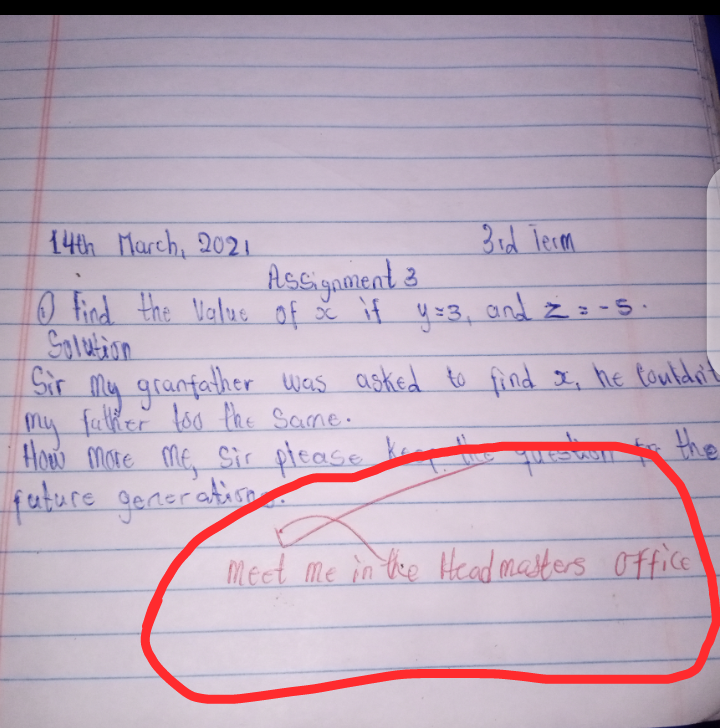 14th March, 2021 3rd Term
Assignment 3
① Find the Value of x if y=3, and z = -5.
Solution
Sir My granfather was asked to find x, he Couldn't
my father too the Same.
How more Me, Sir please keep the question for the
future generations.
Meet me in the Headmasters Office